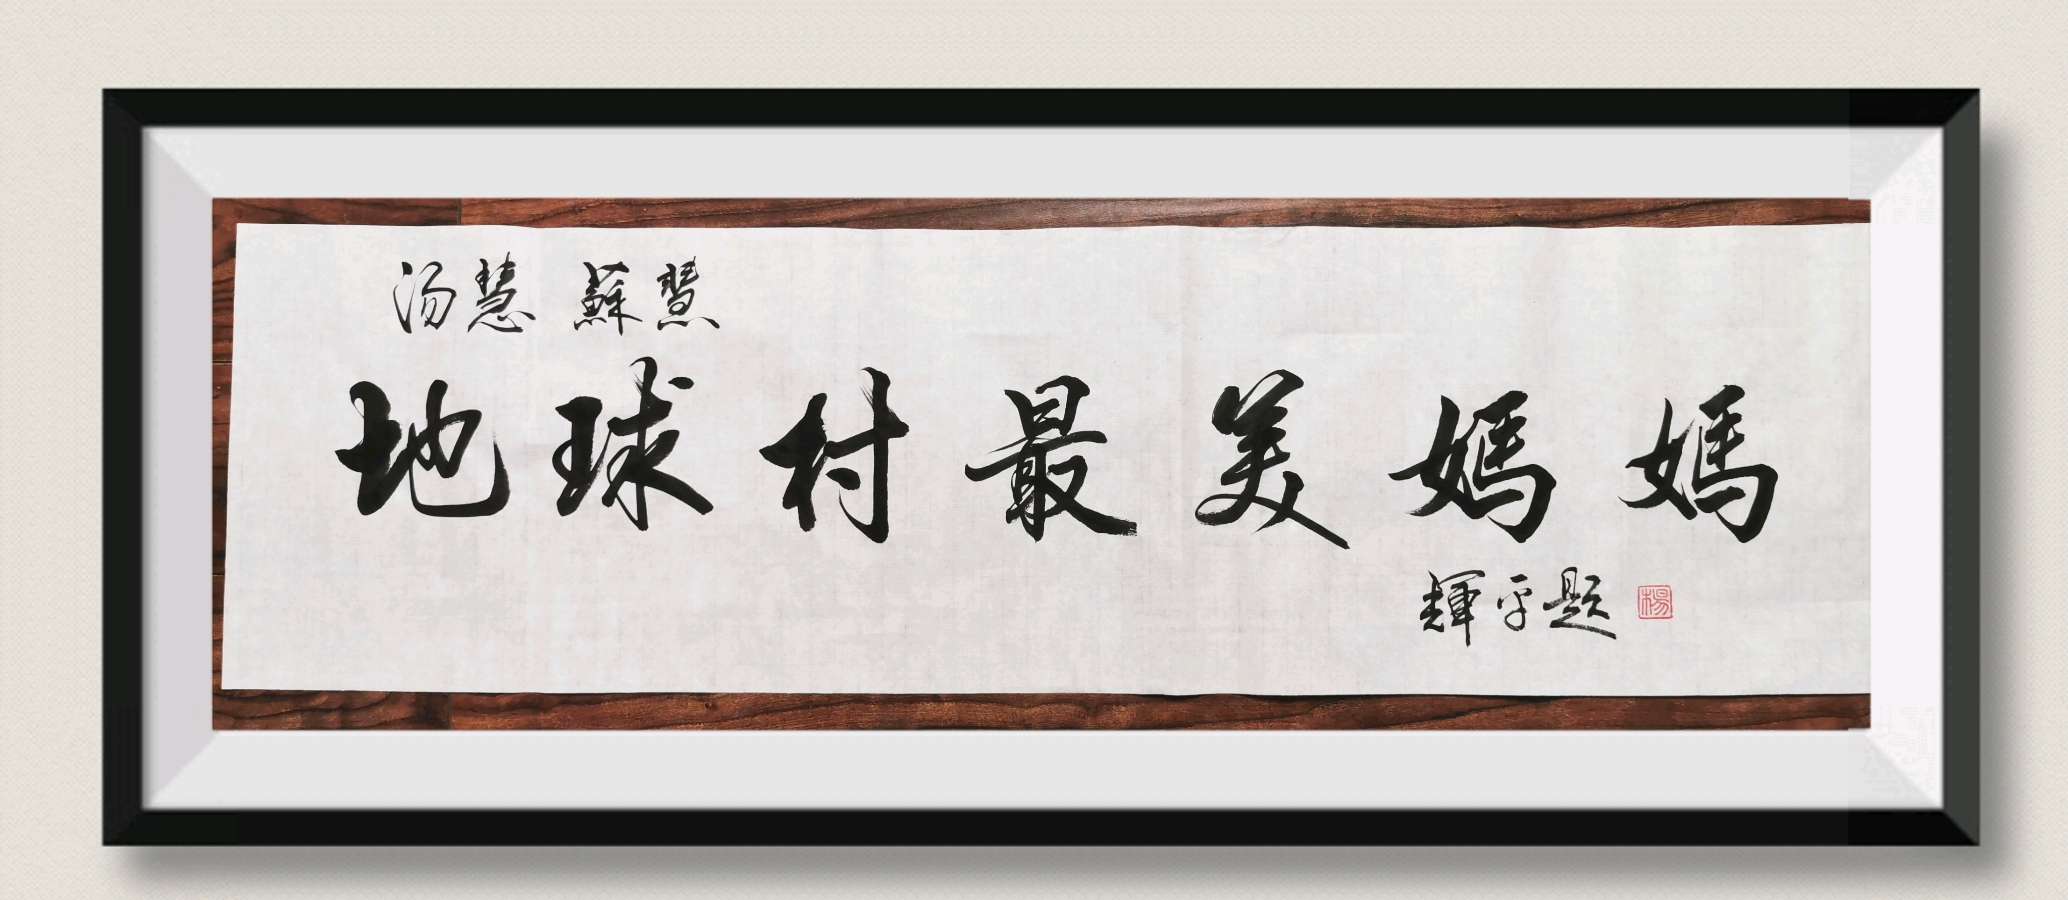 汤慧 蘇慧
地球村最美媽媽
輝平題
楊